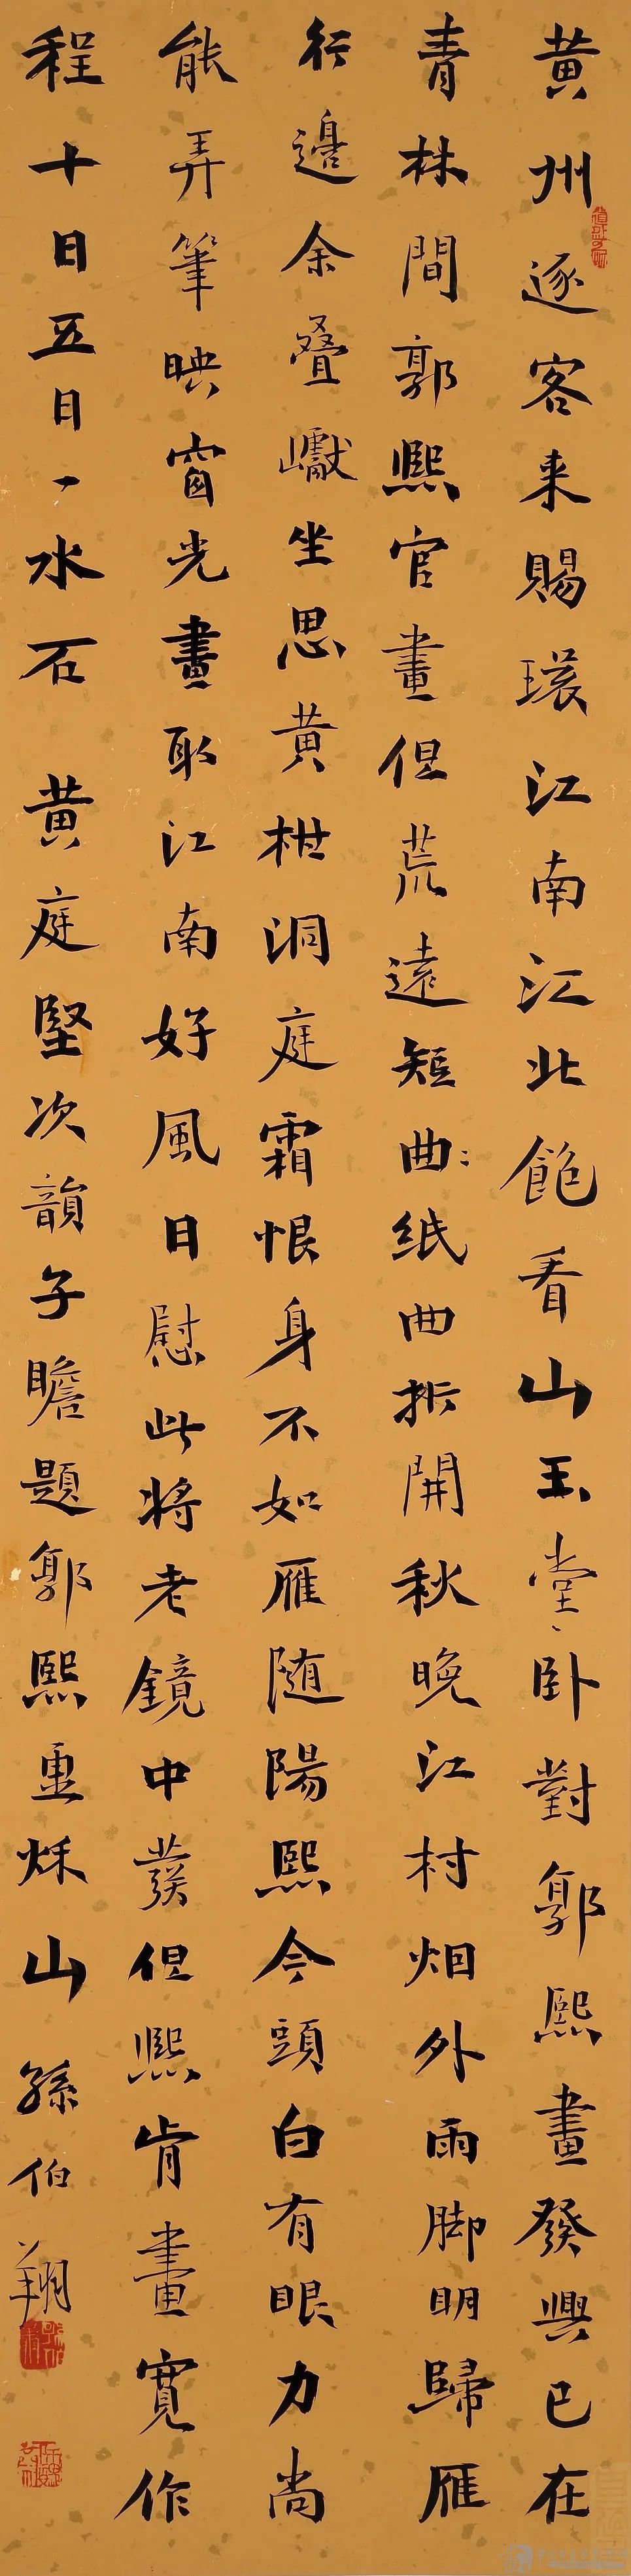 黄州逐客来賜環江南江北飽看山玉堂卧對郭熙畫發興已在
青林間郭熙官畫但荒遠短曲紙曲折開秋晚江村烟外雨脚明歸雁
行邊余叠巘坐思黄柑洞庭霜恨身不如雁随陽熙今頭白有眼力尚
能弄筆映窗光畫取江南好風日慰此將老鏡中發但熙肯畫寬作
程十日五日一水石 黄庭堅次韻子瞻題郭熙画秌山 孫伯翔